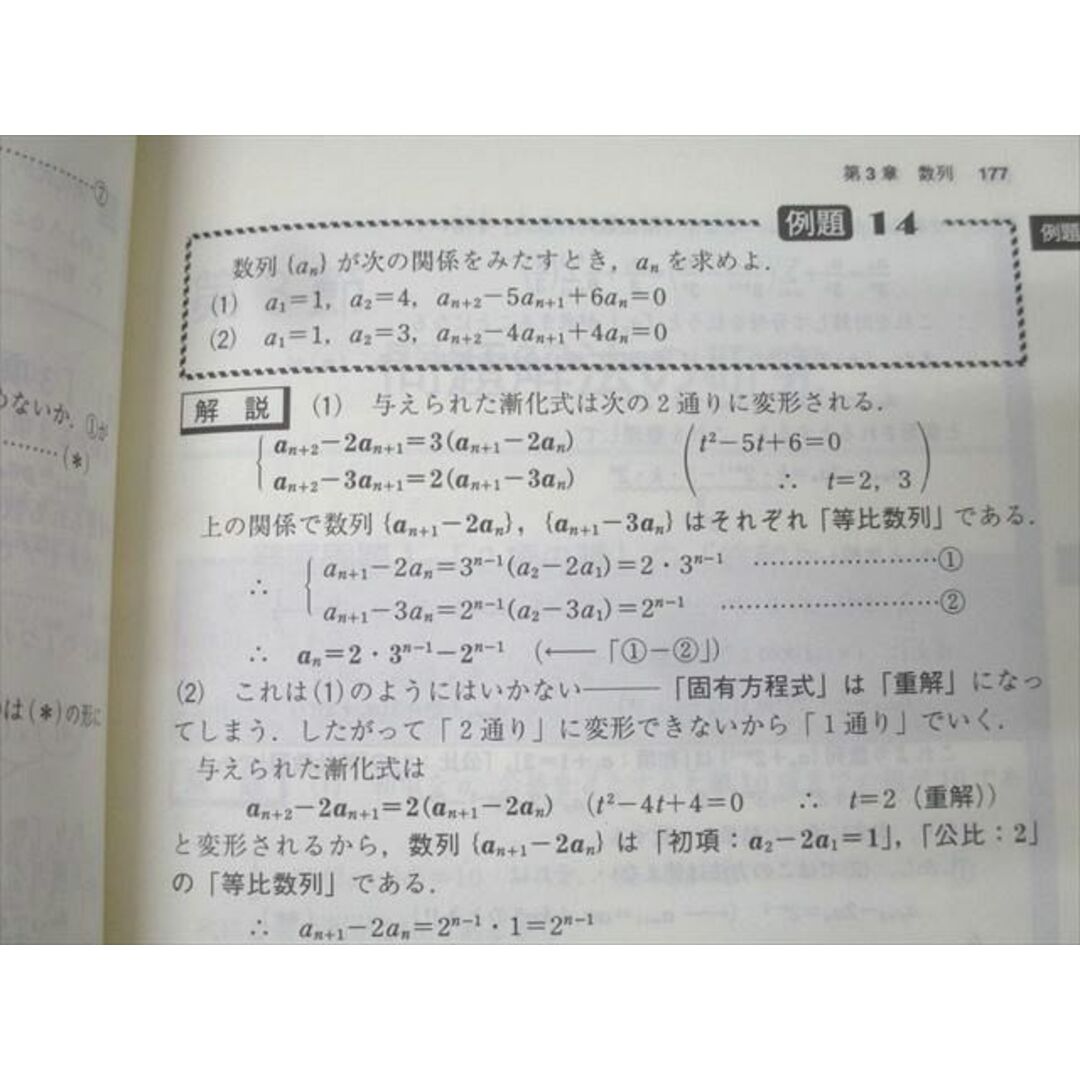 ⑦
ないか.①が
(*)
は(*)の形に
第3章 数列 177
例題 14
例題
数列{aₙ}が次の関係をみたすとき,aₙを求めよ.
(1) a₁=1, a₂=4, aₙ₊₂−5aₙ₊₁+6aₙ=0
(2) a₁=1, a₂=3, aₙ₊₂−4aₙ₊₁+4aₙ=0
解説 (1) 与えられた漸化式は次の2通りに変形される.
aₙ₊₂−2aₙ₊₁=3(aₙ₊₁−2aₙ) (t²−5t+6=0
aₙ₊₂−3aₙ₊₁=2(aₙ₊₁−3aₙ) ∴ t=2, 3)
上の関係で数列{aₙ₊₁−2aₙ},{aₙ₊₁−3aₙ}はそれぞれ「等比数列」である.
∴ aₙ₊₁−2aₙ=3ⁿ⁻¹(a₂−2a₁)=2・3ⁿ⁻¹ ……………………①
aₙ₊₁−3aₙ=2ⁿ⁻¹(a₂−3a₁)=2ⁿ⁻¹ ………………………②
∴ aₙ=2・3ⁿ⁻¹−2ⁿ⁻¹ (←「①−②」)
(2) これは(1)のようにはいかない――「固有方程式」は「重解」になっ
てしまう.したがって「2通り」に変形できないから「1通り」でいく.
与えられた漸化式は
aₙ₊₂−2aₙ₊₁=2(aₙ₊₁−2aₙ) (t²−4t+4=0 ∴ t=2(重解))
と変形されるから,数列{aₙ₊₁−2aₙ}は「初項:a₂−2a₁=1」,「公比:2」
の「等比数列」である.
∴ aₙ₊₁−2aₙ=2ⁿ⁻¹・1=2ⁿ⁻¹